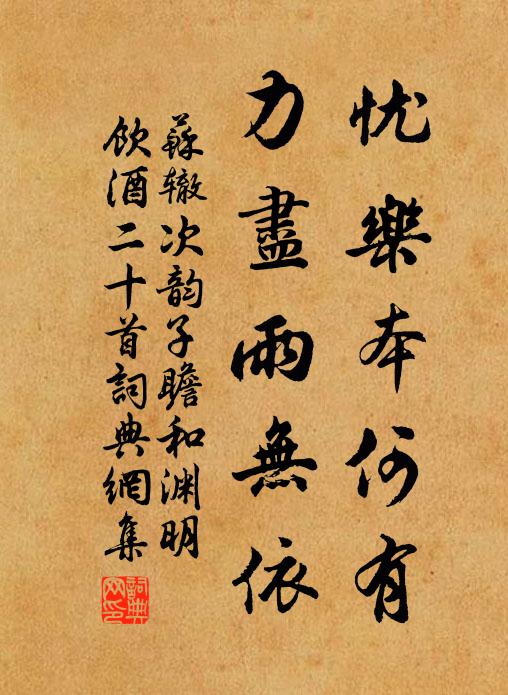 忧樂本何有
力盡兩無依
蘇辙次韵子瞻和渊明
飲酒二十首詞典網集
詞典
网印